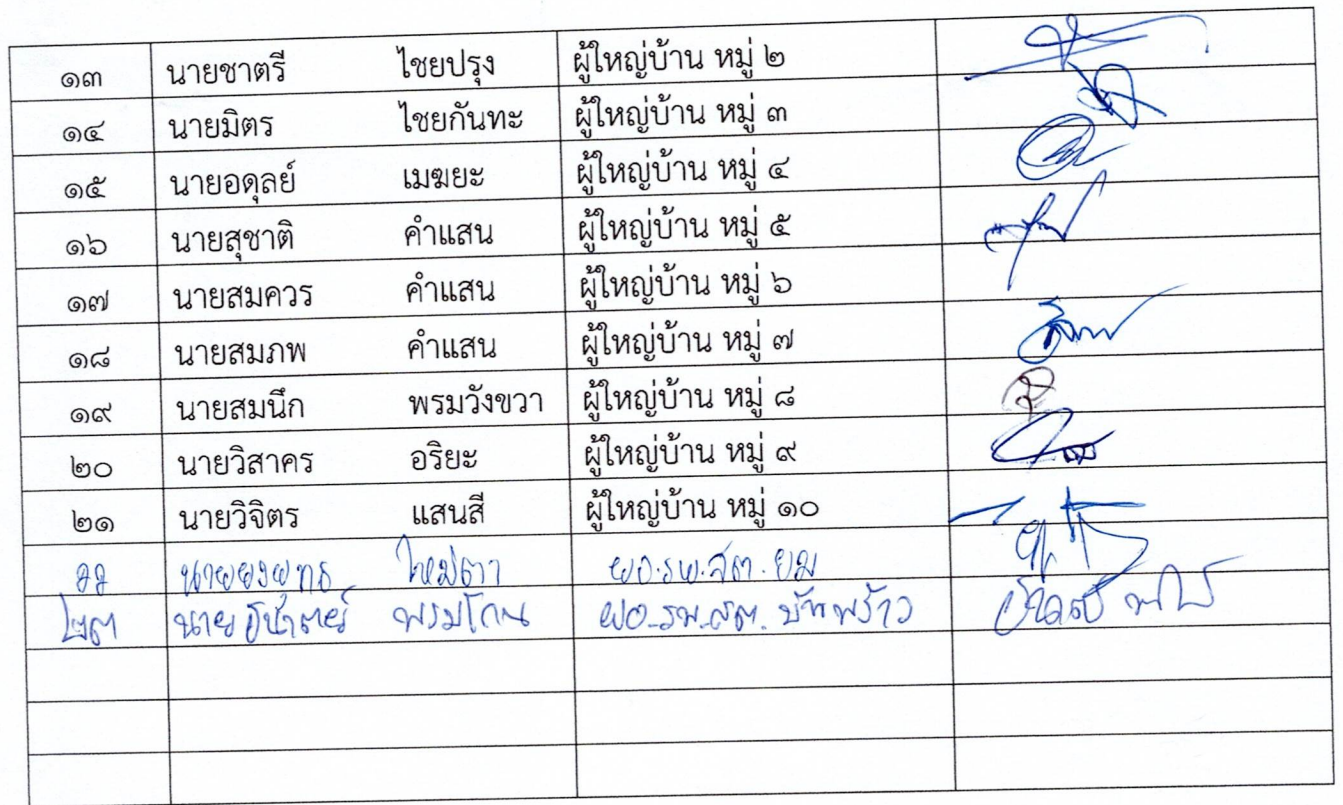 ๑๓ นายชาตรี ไชยปรุง ผู้ใหญ่บ้าน หมู่ ๒
๑๔ นายมิตร ไชยกันทะ ผู้ใหญ่บ้าน หมู่ ๓
๑๕ นายอดุลย์ เมฆยะ ผู้ใหญ่บ้าน หมู่ ๔
๑๖ นายสุชาติ คำแสน ผู้ใหญ่บ้าน หมู่ ๕
๑๗ นายสมควร คำแสน ผู้ใหญ่บ้าน หมู่ ๖
๑๘ นายสมภพ คำแสน ผู้ใหญ่บ้าน หมู่ ๗
๑๙ นายสมนึก พรมวังขวา ผู้ใหญ่บ้าน หมู่ ๘
๒๐ นายวิสาคร อริยะ ผู้ใหญ่บ้าน หมู่ ๙
๒๑ นายวิจิตร แสนสี ผู้ใหญ่บ้าน หมู่ ๑๐
นายยงยุทธ ใหม่ตา ผอ.รพ.สต.ยม
๒๓ นาย ผอ.รพ.สต.